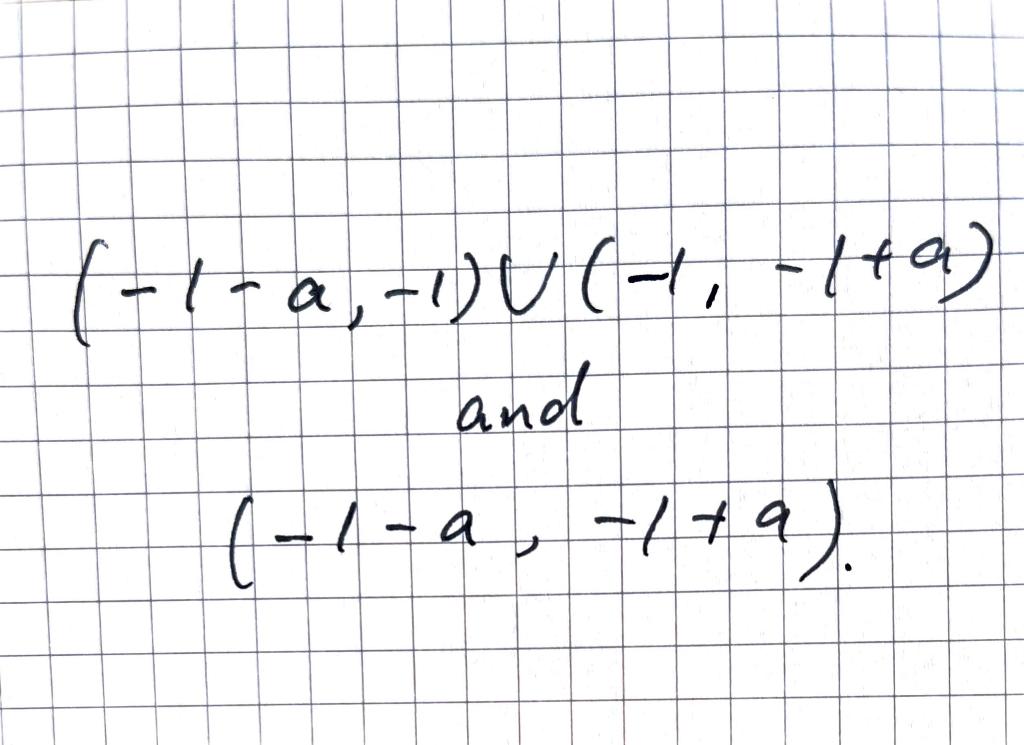 (-1-a,-1)∪(-1, -1+a)
and
(-1-a, -1+a).